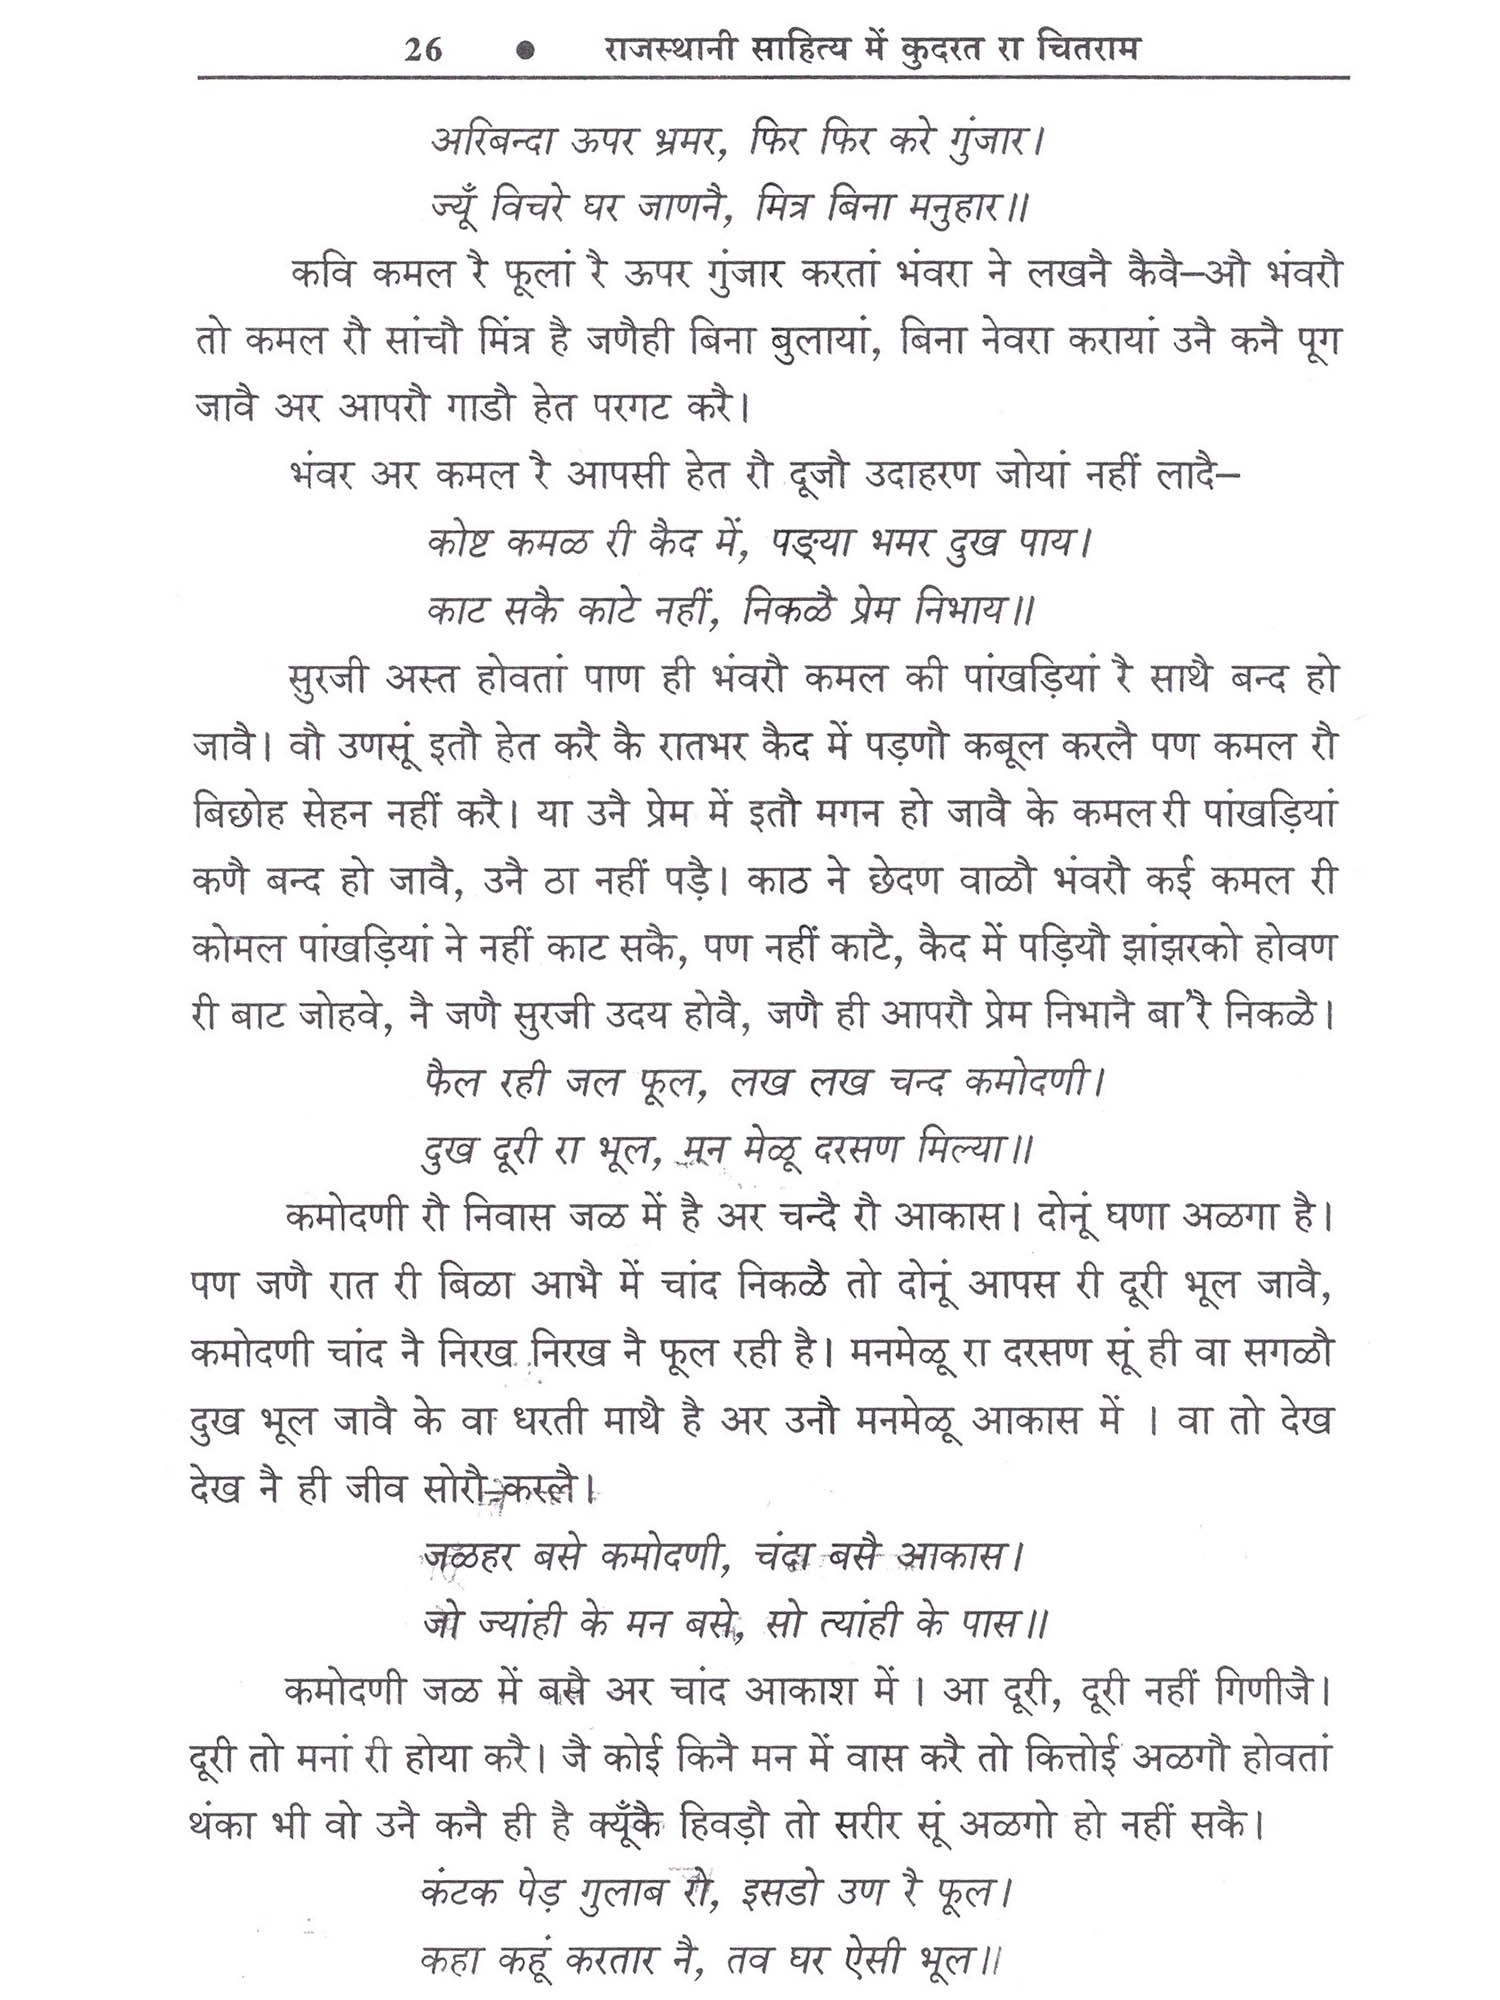 26 ● राजस्थानी साहित्य में कुदरत रा चितराम
अरिबन्दा ऊपर भ्रमर, फिर फिर करे गुंजार।
ज्यूँ विचरे घर जाणनै, मित्र बिना मनुहार॥
कवि कमल रै फूलां रै ऊपर गुंजार करतां भंवरा ने लखनै कैवै–औ भंवरौ
तो कमल रौ सांचौ मिंत्र है जणैही बिना बुलायां, बिना नेवरा करायां उनै कनै पूग
जावै अर आपरौ गाडौ हेत परगट करै।
भंवर अर कमल रै आपसी हेत रौ दूजौ उदाहरण जोयां नहीं लादै–
कोष्ट कमळ री कैद में, पङ्या भमर दुख पाय।
काट सकै काटे नहीं, निकळै प्रेम निभाय॥
सुरजी अस्त होवतां पाण ही भंवरौ कमल की पांखड़ियां रै साथै बन्द हो
जावै। वौ उणसूं इतौ हेत करै कै रातभर कैद में पड़णौ कबूल करलै पण कमल रौ
बिछोह सेहन नहीं करै। या उनै प्रेम में इतौ मगन हो जावै के कमल री पांखड़ियां
कणै बन्द हो जावै, उनै ठा नहीं पड़ै। काठ ने छेदण वाळौ भंवरौ कई कमल री
कोमल पांखड़ियां ने नहीं काट सकै, पण नहीं काटै, कैद में पड़ियौ झांझरको होवण
री बाट जोहवे, नै जणै सुरजी उदय होवै, जणै ही आपरौ प्रेम निभानै बा'रै निकळै।
फैल रही जल फूल, लख लख चन्द कमोदणी।
दुख दूरी रा भूल, मन मेळू दरसण मिल्या॥
कमोदणी रौ निवास जळ में है अर चन्दै रौ आकास। दोनूं घणा अळगा है।
पण जणै रात री बिळा आभै में चांद निकळै तो दोनूं आपस री दूरी भूल जावै,
कमोदणी चांद नै निरख निरख नै फूल रही है। मनमेळू रा दरसण सूं ही वा सगळौ
दुख भूल जावै के वा धरती माथै है अर उनौ मनमेळू आकास में । वा तो देख
देख नै ही जीव सोरौ कस्लै।
जळहर बसे कमोदणी, चंदा बसै आकास।
जो ज्यांही के मन बसे, सो त्यांही के पास॥
कमोदणी जळ में बसै अर चांद आकाश में । आ दूरी, दूरी नहीं गिणीजै।
दूरी तो मनां री होया करै। जै कोई किनै मन में वास करै तो कित्तोई अळगौ होवतां
थंका भी वो उनै कनै ही है क्यूँकै हिवड़ौ तो सरीर सूं अळगो हो नहीं सकै।
कंटक पेड़ गुलाब रो, इसडो उण रै फूल।
कहा कहूं करतार नै, तव घर ऐसी भूल॥